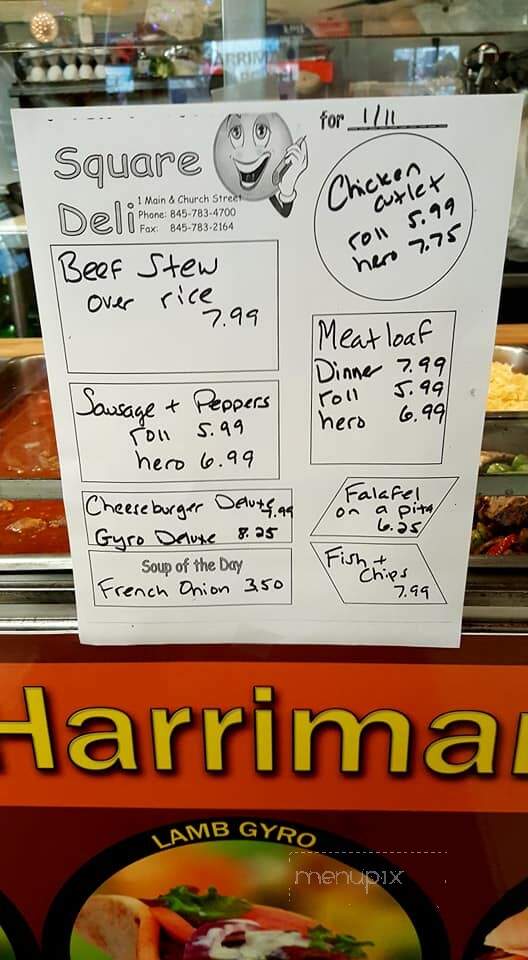 for 1/11
Square
Deli
1 Main & Church Street
Phone: 845-783-4700
Fax: 845-783-2164
Chicken
cutlet
roll 5.99
hero 7.75
Beef Stew
over rice
7.99
Meatloaf
Dinner 7.99
roll 5.99
hero 6.99
Sausage + Peppers
roll 5.99
hero 6.99
Cheeseburger Deluxe
Gyro Deluxe 8.25
Falafel
on a pita
6.25
Soup of the Day
French Onion 3.50
Fish +
Chips
7.99
Harriman
LAMB GYRO
menupix